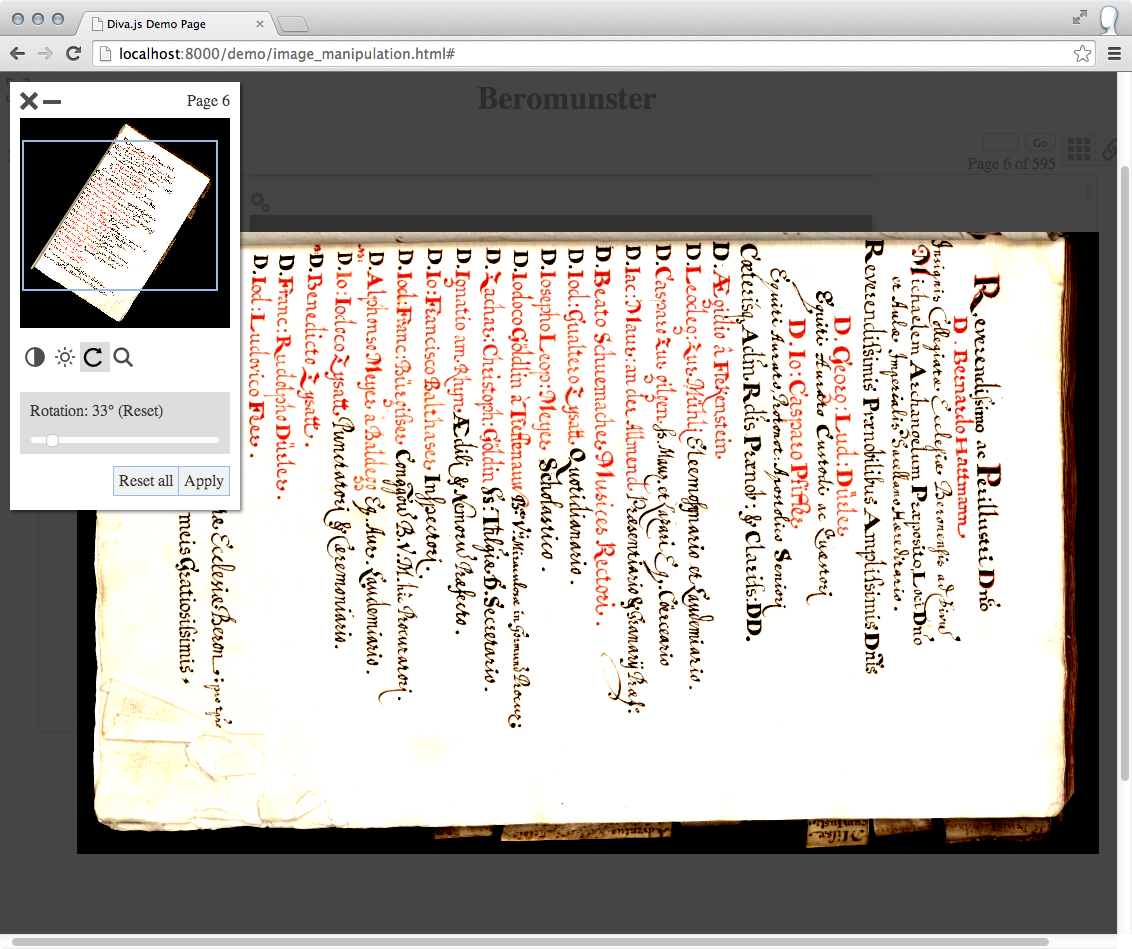 Diva.js Demo Page
localhost:8000/demo/image_manipulation.html#
Beromunster
Go
Page 6 of 595
Page 6
Rotation: 33° (Reset)
Reset all
Apply
Reverendissimo ac Perillustri Dño
D. Bernardo Hattmann
Insignis Collegiatæ Ecclesiæ Beronensis ad
Michaelem Archangelum Præposito, Loci Dño
et Aulæ Imperialis Sacellano Hæredrario.
Reverendissimis Prænobilibus Amplissimis Dñis
D. Georg: Lud. Dürler
Equiti Aurato Custodi ac Quæstori
D. Io: Casparo Pfiffer
Equiti Aurato, Protonot: Apostolico Seniori
Cæterisq Adm. Rdis Prænob: & Clariss: DD.
D. Ægidio à Fleckenstein.
D. Leodeg: Zur Mühli Eleemosynario et Laudemiario.
D. Casparo Zur gilgen
D. Iac: Maur: an der Almend Præsentiario & Granarij Præf:
D. Beato Schuemacher Musices Rectori.
D. Iod: Gualtero Zysatt Quotidianario.
D. Iosepho Leon: Meyer Scholastico.
D. Iodoco Göldlin à Tieffenauw
D. Zachar: Christoph: Göldin SS: Thlgiæ D. Secretario.
D. Ignatio am Rhyn Ædili & Nemorū Præfecto.
D. Io: Francisco Balthaser Inspectori.
D. Iod: Franc: Bürgisser B.V.M. Procuratori.
D. Alphonso Meyer à Baldegg Eq. Aur. Laudomiario.
D. Io: Iodoco Zysatt Punctatori & Cæremoniario.
D. Benedicto Zysatt.
D. Franc: Rudolpho Dürler.
D. Iod: Ludovico Feer.
Ecclesiæ Beron
meis Gratiosissimis.